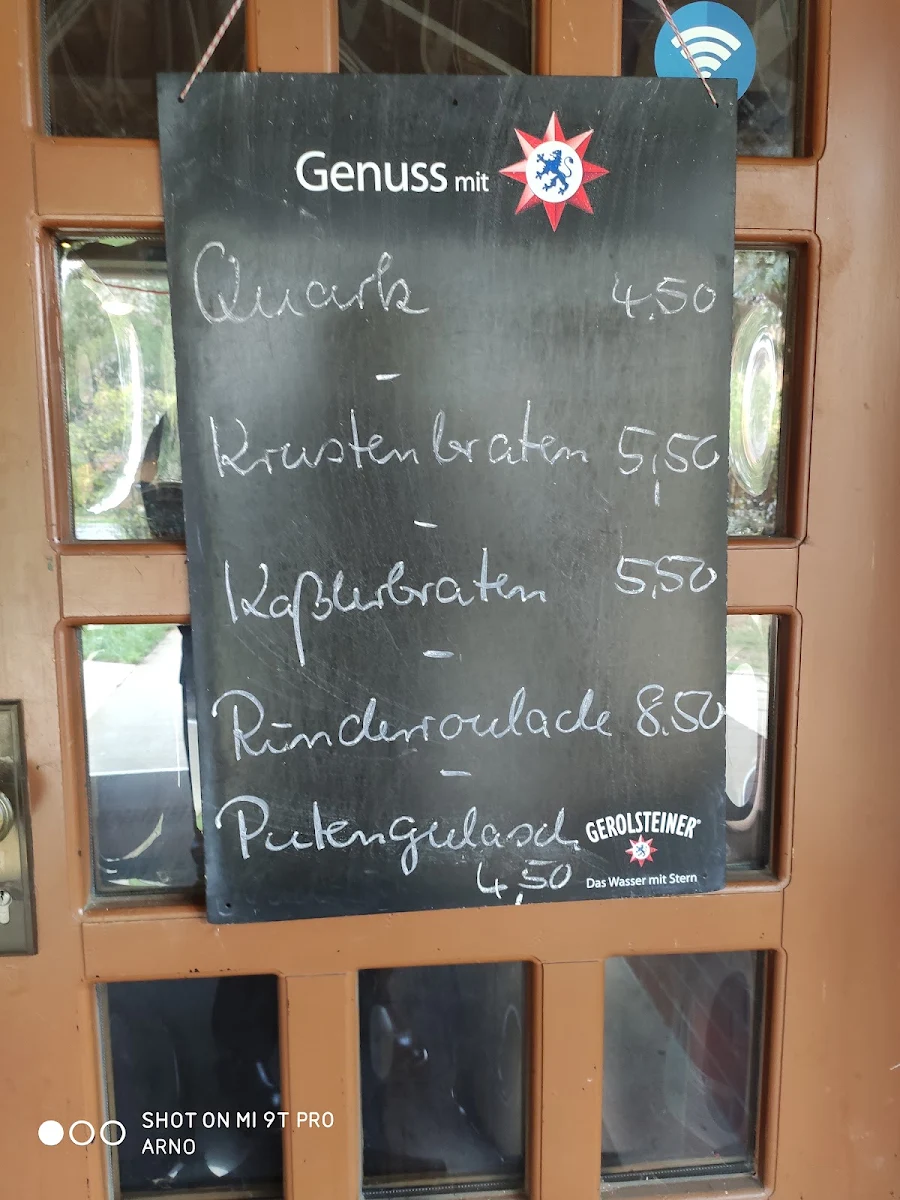 Genuss mit
Quark 4,50
-
Krustenbraten 5,50
-
Kaßlerbraten 5,50
-
Rinderroulade 8,50
-
Putengulasch
4,50
GEROLSTEINER®
Das Wasser mit Stern
SHOT ON MI 9T PRO
ARNO